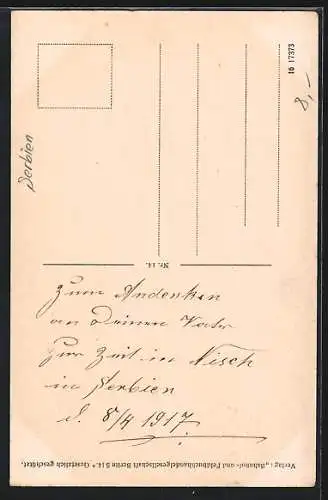 16 17373
8,-
Serbien
Nr. 14.
Zum Andenken
an Deinen Vater
Zur Zeit in Nisch
in Serbien
d. 8/4 1917
Verlag: „Bahnhof- und Feldbuchhandelgesellschaft Berlin S 14.“ Gesetzlich geschützt.